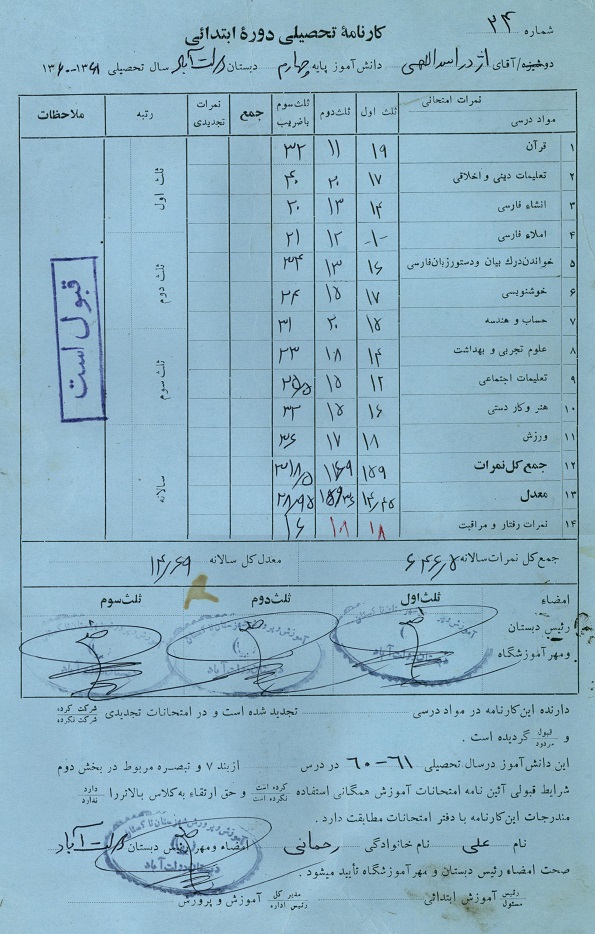 شماره ۲۴
کارنامهٔ تحصیلی دورهٔ ابتدائی
دوشیزه/آقای اسداللهی دانش‌آموز پایه چهارم دبستان دولت‌آباد سال تحصیلی ۱۳۶۱-۱۳۶۰
نمرات امتحانی
مواد درسی ثلث اول ثلث‌دوم ثلث‌سوم باضریب جمع نمرات تجدیدی رتبه ملاحظات
۱ قرآن ۱۹ ۱۱ ۳۲
۲ تعلیمات دینی و اخلاقی ۱۷ ۲۰ ۴۰
۳ انشاء فارسی ۱۴ ۱۳ ۲۰
۴ املاء فارسی ۱۰ ۱۲ ۲۱
۵ خواندن‌درك بیان ودستورزبان‌فارسی ۱۶ ۱۳ ۳۴
۶ خوشنویسی ۱۷ ۱۵ ۲۴
۷ حساب و هندسه ۱۵ ۲۰ ۳۱
۸ علوم تجربی و بهداشت ۱۴ ۱۸ ۲۳
۹ تعلیمات اجتماعی ۱۲ ۱۵ ۲۵/۵
۱۰ هنر و کار دستی ۱۶ ۱۵ ۳۲
۱۱ ورزش ۱۸ ۱۷ ۳۶
۱۲ جمع‌کل‌نمرات ۱۵۹ ۱۶۹ ۳۱۸/۵
۱۳ معدل ۱۴/۴۵ ۱۵/۳۶ ۲۸/۹۵
۱۴ نمرات رفتار و مراقبت ۱۸ ۱۸ ۱۶
ثلث اول
ثلث دوم
ثلث سوم
سالانه
قبول است
جمع‌کل نمرات‌سالانه ۶۴۶/۵ معدل‌کل سالانه ۱۴/۶۹
امضاء ثلث‌اول ثلث‌دوم ثلث‌سوم
رئیس دبستان
ومهرآموزشگاه
دارنده این‌کارنامه در مواد درسی تجدید شده است و در امتحانات تجدیدی شرکت کرده شرکت نکرده
و قبول مردود گردیده است .
این دانش‌آموز درسال تحصیلی ۶۱-۶۰ در درس ازبند ۷ و تبصره مربوط در بخش دوم
شرایط قبولی آئین نامه امتحانات آموزش همگانی استفاده کرده است نکرده است و حق ارتقاء به‌کلاس بالاتررا دارد ندارد
مندرجات این‌کارنامه با دفتر امتحانات مطابقت دارد .
نام علی نام خانوادگی رحمانی امضاء ومهر رئیس دبستان دولت‌آباد
صحت امضاء رئیس دبستان و مهرآموزشگاه تأیید میشود .
رئیس مسئول آموزش ابتدائی مدیر کل رئیس اداره آموزش و پرورش